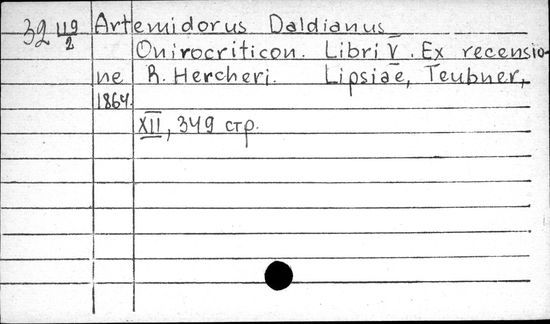 32 119/2 Artemidorus Daldianus
Onirocriticon. Libri V. Ex recensio-
ne R. Hercheri. Lipsiae, Teubner,
1864.
XII, 349 стр.